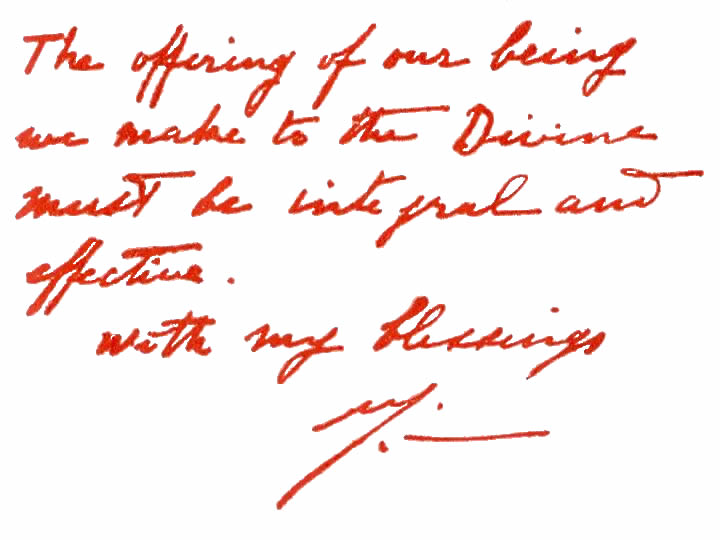 The offering of our being
we make to the Divine
must be integral and
effective.
with my blessings